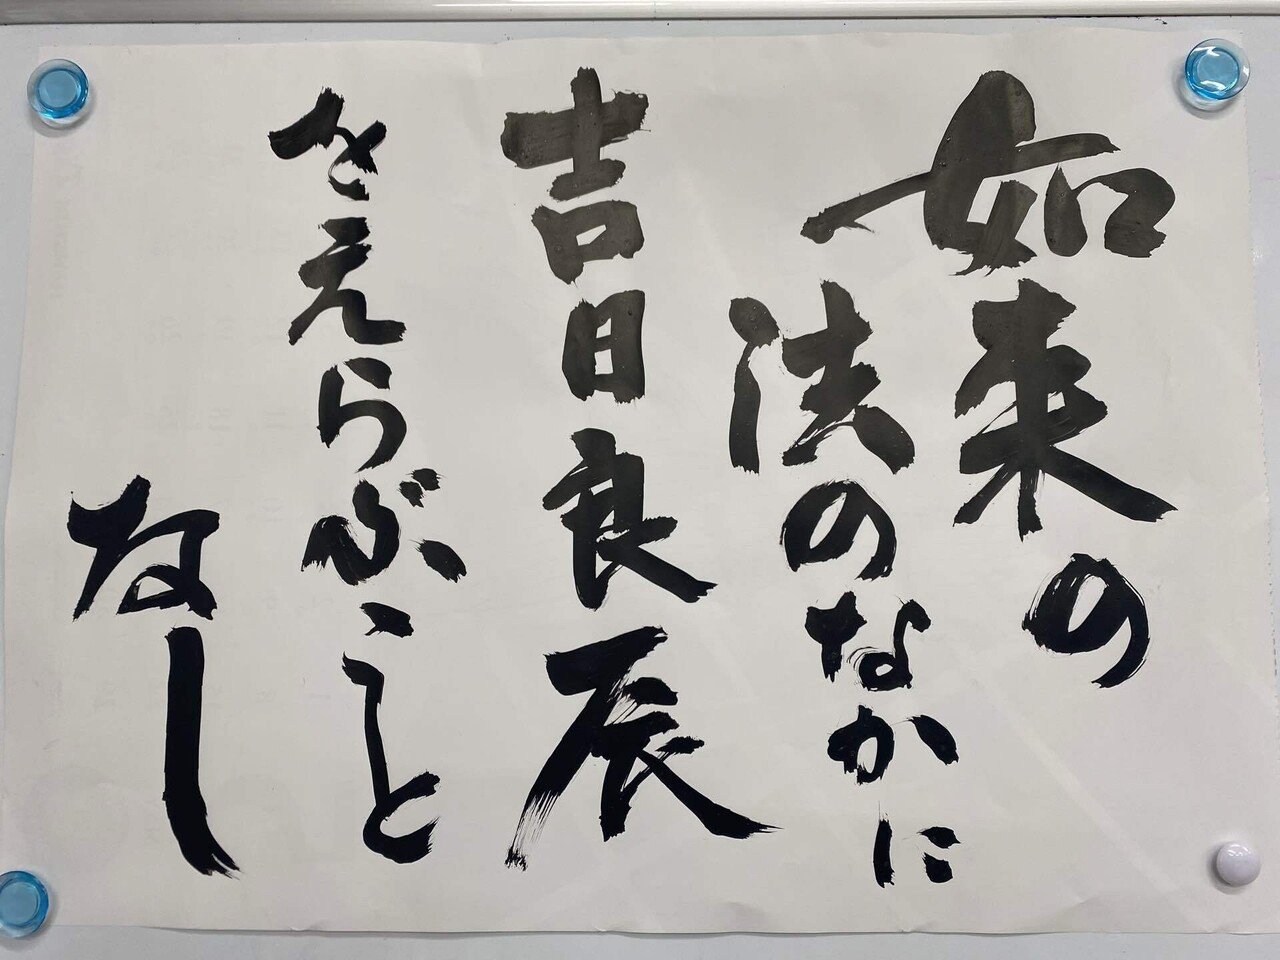 如来の
法のなかに
吉日良辰
をえらぶこと
なし